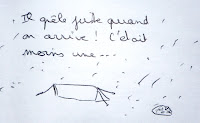 Il grêle juste quand
on arrive ! C'était
moins une...